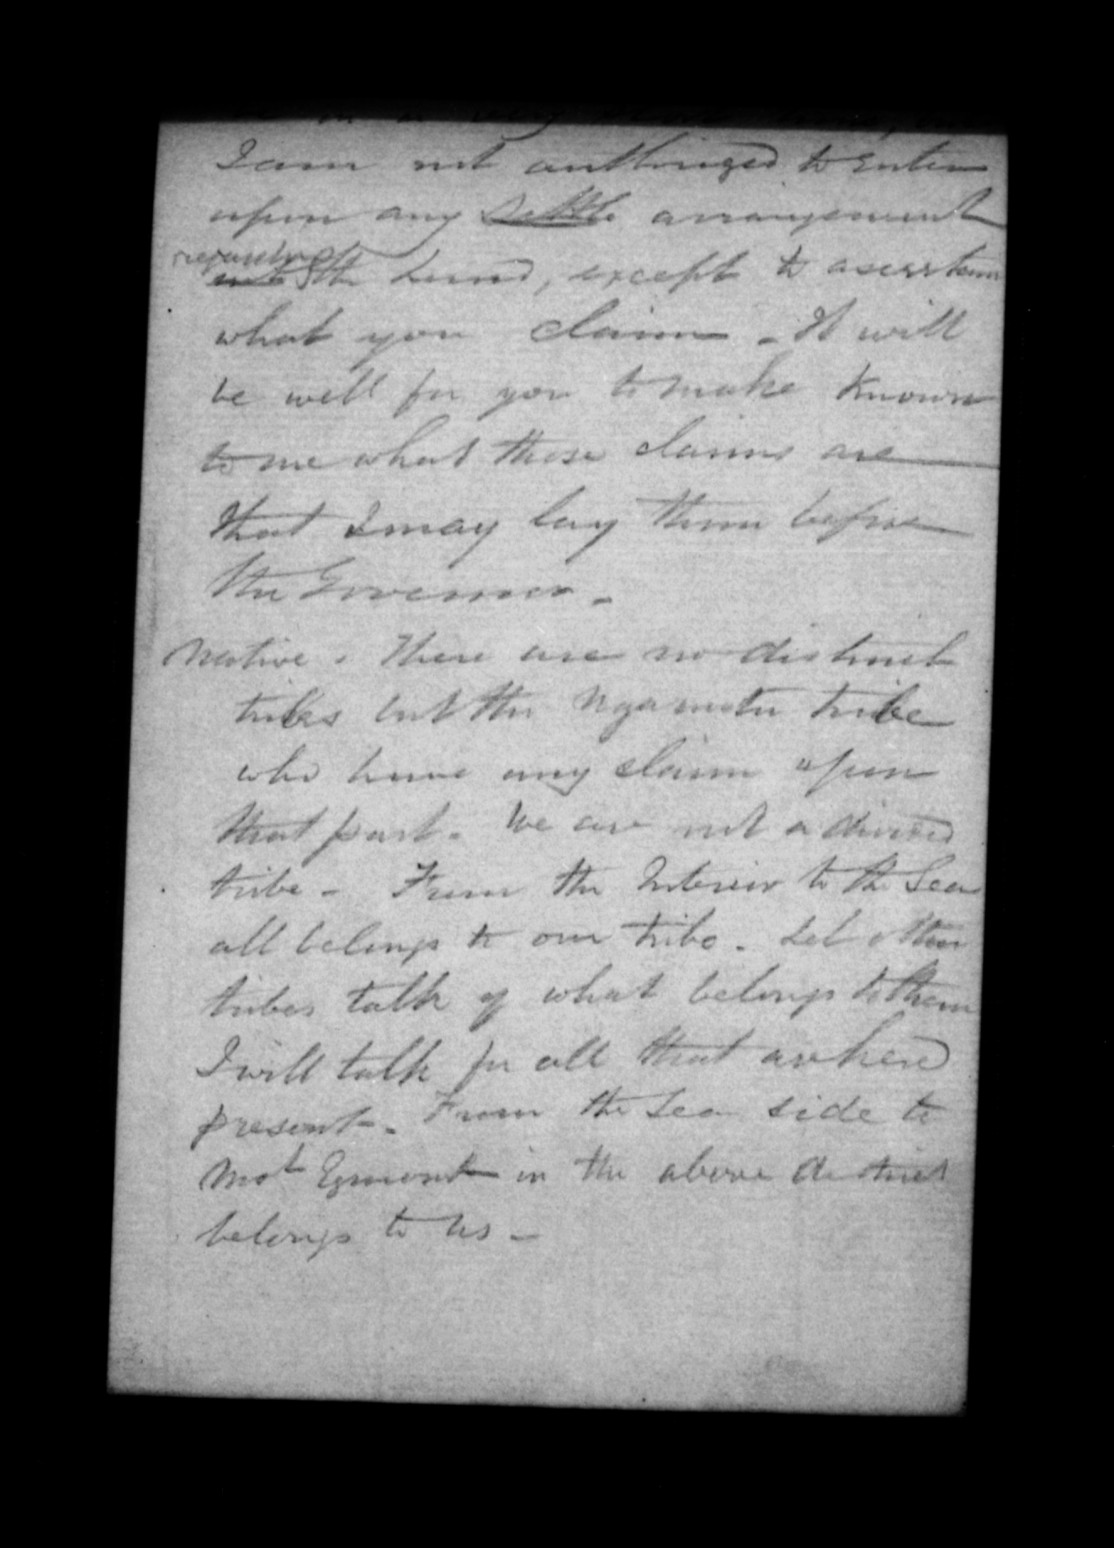 I am not authorized to enter
upon any settle arrangement
regarding
the land, except to asertain
what you claim - It will
be well for you to make known
to me what those claims are
that I may lay them before
the Governor -
Native - There are no distinct
tribes but the Ngamotu tribe
who have any claim upon
that part - We are not a divided
tribe - From the Interior to the Sea
all belongs to our tribe - Let other
tribes talk of what belongs to them
I will talk for all that are here
present - From the Sea side to
Mot Egmont in the above district
belongs to us -